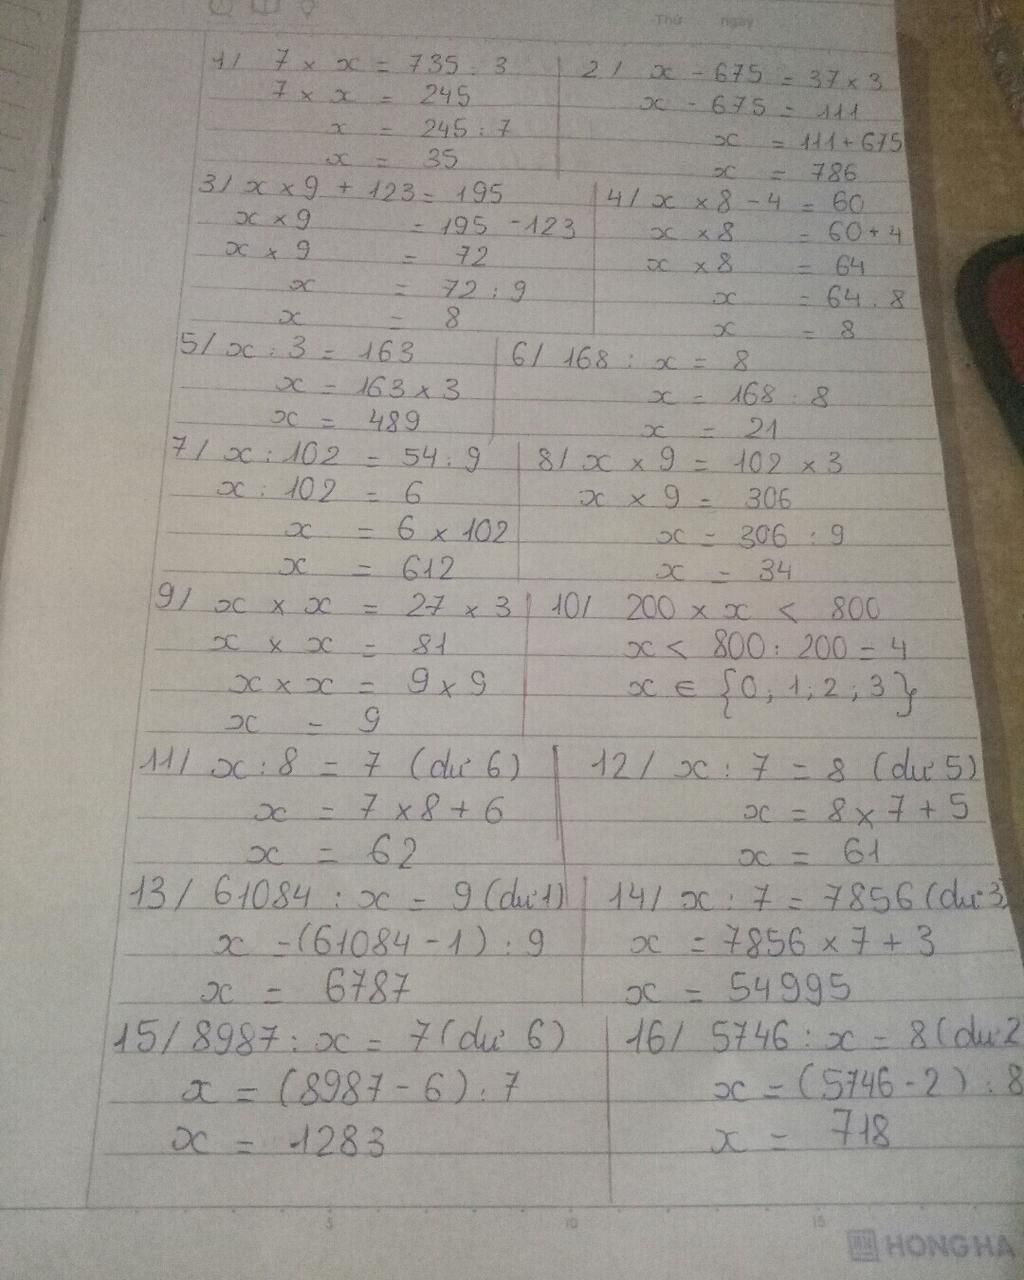 Thứ ngày
1/ 7 × x = 735 : 3
7 × x = 245
x = 245 : 7
x = 35
2/ x - 675 = 37 × 3
x - 675 = 111
x = 111 + 675
x = 786
3/ x × 9 + 123 = 195
x × 9 = 195 - 123
x × 9 = 72
x = 72 : 9
x = 8
4/ x × 8 - 4 = 60
x × 8 = 60 + 4
x × 8 = 64
x = 64 : 8
x = 8
5/ x : 3 = 163
x = 163 × 3
x = 489
6/ 168 : x = 8
x = 168 : 8
x = 21
7/ x : 102 = 54 : 9
x : 102 = 6
x = 6 × 102
x = 612
8/ x × 9 = 102 × 3
x × 9 = 306
x = 306 : 9
x = 34
9/ x × x = 27 × 3
x × x = 81
x × x = 9 × 9
x = 9
10/ 200 × x < 800
x < 800 : 200 = 4
x ∈ {0; 1; 2; 3}
11/ x : 8 = 7 (dư 6)
x = 7 × 8 + 6
x = 62
12/ x : 7 = 8 (dư 5)
x = 8 × 7 + 5
x = 61
13/ 61084 : x = 9 (dư 1)
x = (61084 - 1) : 9
x = 6787
14/ x : 7 = 7856 (dư 3)
x = 7856 × 7 + 3
x = 54995
15/ 8987 : x = 7 (dư 6)
x = (8987 - 6) : 7
x = 1283
16/ 5746 : x = 8 (dư 2
x = (5746 - 2) : 8
x = 718
5 10 15
HONG HA